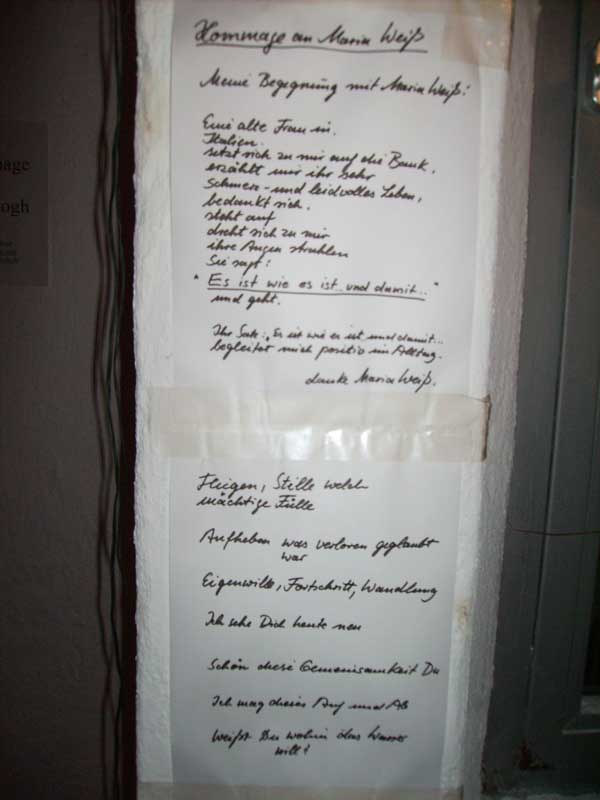 Hommage an Maria Weiß
Meine Begegnung mit Maria Weiß:
Eine alte Frau in.
Italien.
setzt sich zu mir auf die Bank,
erzählt mir ihr sehr
Schmerz- und leidvolles Leben,
bedankt sich.
steht auf
dreht sich zu mir
ihre Augen strahlen
Sie sagt:
"Es ist wie es ist und damit..."
und geht.
Ihr Satz: "Es ist wie es ist und damit...
begleitet mich positiv im Alltag.
danke Maria Weiß.
Fliegen, Stille welch
mächtige Fülle
Aufheben was verloren geglaubt
war
Eigenwille, Fortschritt, Wandlung
Ich sehe Dich heute neu
Schön diese Gemeinsamkeit Du
Ich mag dieses Auf und Ab
Weißt Du wohin das Wasser
will?
nage
ogh